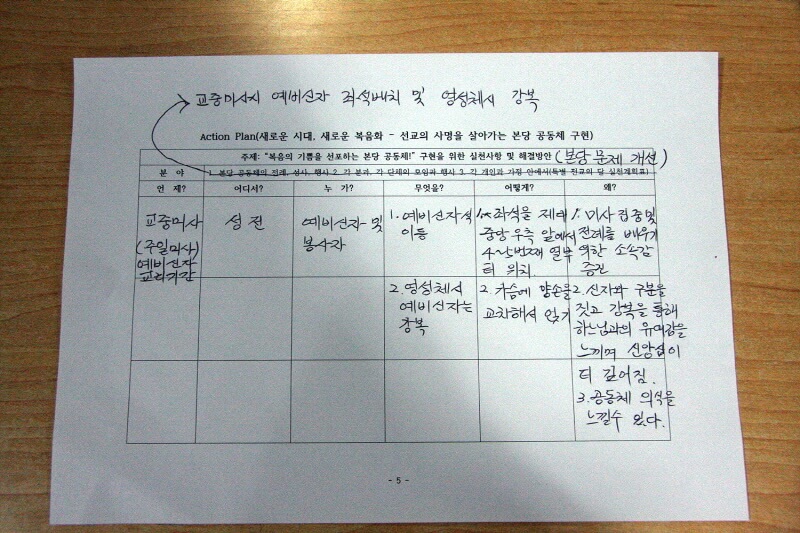 교중미사시 예비신자 좌석배치 및 영성체시 강복
Action Plan(새로운 시대, 새로운 복음화 - 선교의 사명을 살아가는 본당 공동체 구현)
주제: "복음의 기쁨을 선포하는 본당 공동체!" 구현을 위한 실천사항 및 해결방안 (본당 문제 개선)
분 야 1. 본당 공동체의 전례, 성사, 행사 2. 각 분과, 각 단체의 모임과 행사 3. 각 개인과 가정 안에서(특별 전교의 달 실천계획표)
언 제? 어디서? 누 가? 무엇을? 어떻게? 왜?
교중미사
(주일미사)
예비신자
교리기간
성전
예비신자 및
봉사자
1. 예비신자석
이동
1. 좌석을 제대
중앙 우측 앞에서
4~5번째 열부
터 위치.
1. 미사 집중 및
전례를 배우기
위한 소속감
증진
2. 영성체시
예비신자는
강복
2. 가슴에 양손을
교차해서 얹기
2. 신자와 구분을
짓고 강복을 통해
하느님과의 유대감을
느끼며 신앙심이
더 깊어짐.
3. 공동체 의식을
느낄수 있다.
- 5 -